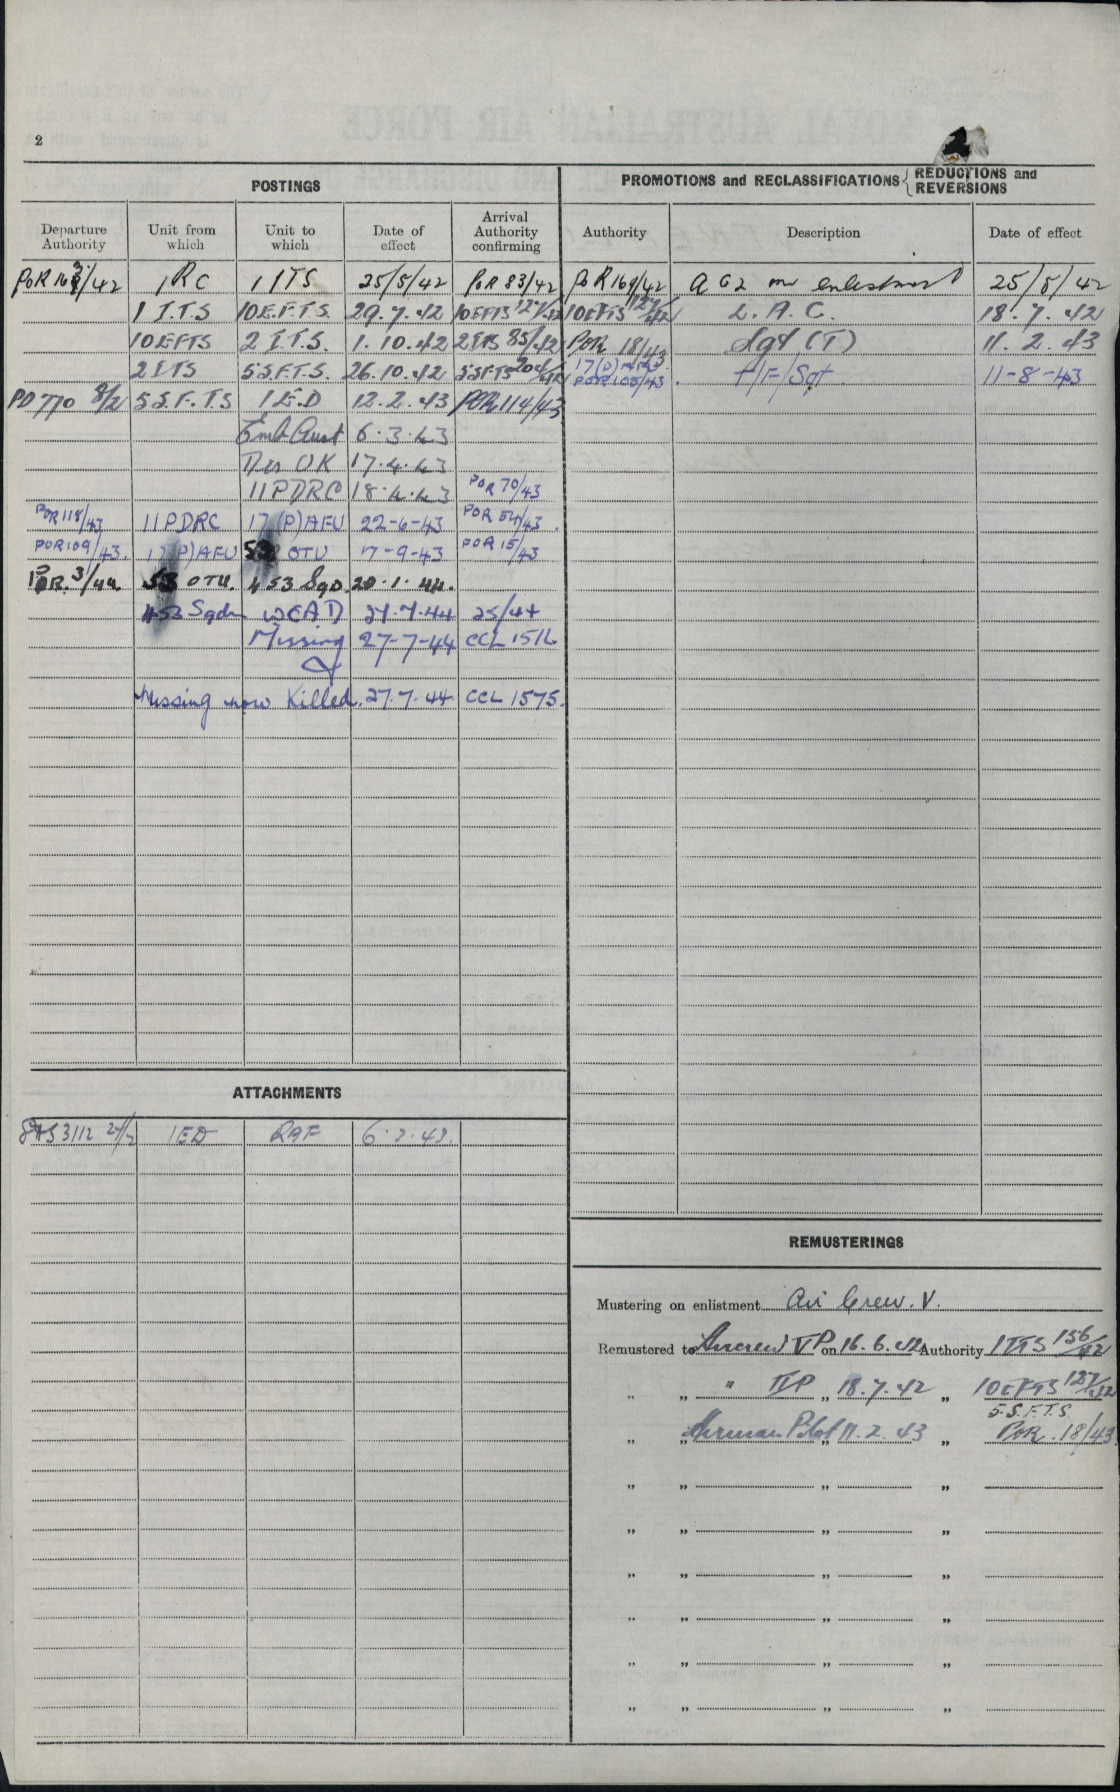 2
POSTINGS
Departure Authority | Unit from which | Unit to which | Date of effect | Arrival Authority confirming
POR /42 | 1 RC | 1 ITS | 25/5/42 | POR 83/42
1 I.T.S | 10 E.F.T.S. | 29.7.42 | 10EFTS 127/42
10EFTS | 2 I.T.S. | 1.10.42 | 2ITS 85/42
2 ITS | 5 S.F.T.S. | 26.10.42 | 5SFTS
PD 770 8/2 | 5 S.F.T.S | 1 E.D | 12.2.43 | POR 114/43
Emb Aust | 6.3.43
Dis UK | 17.4.43
11 PDRC | 18.4.43 | POR 70/43
POR 118/43 | 11 PDRC | 17 (P)AFU | 22-6-43 | POR 54/43.
POR 109/43. | 17(P)AFU | 53 OTU | 7-9-43 | POR 15/43
POR. 3/44. | 53 OTU. | 453 Sqd. | 20.1.44.
453 Sqdn | WEAD | 27.7.44 | 25/44
Missing | 27-7-44 | CCL 1516
Missing now Killed. | 27.7.44 | CCL 1575.
PROMOTIONS and RECLASSIFICATIONS { REDUCTIONS and REVERSIONS
Authority | Description | Date of effect
POR 169/42 | AC2 on enlistment | 25/5/42
10EFTS 127/42 | L.A.C. | 18.7.42
POR 18/43 | Sgt (T) | 11.2.43
17(P)AFU POR 105/43. | T/F/Sgt | 11-8-43
ATTACHMENTS
3112 | 1ED | RAF | 6.3.43.
REMUSTERINGS
Mustering on enlistment Air Crew. V.
Remustered to Aircrew V P on 16.6.42 Authority 1 ITS 156/42
„ „ " II P „ 18.7.42 „ 10EFTS 127/42
5.S.F.T.S
„ „ Airman Pilot „ 11.2.43 „ POR. 18/43
„ „ „ „
„ „ „ „
„ „ „ „
„ „ „ „
„ „ „ „
„ „ „ „